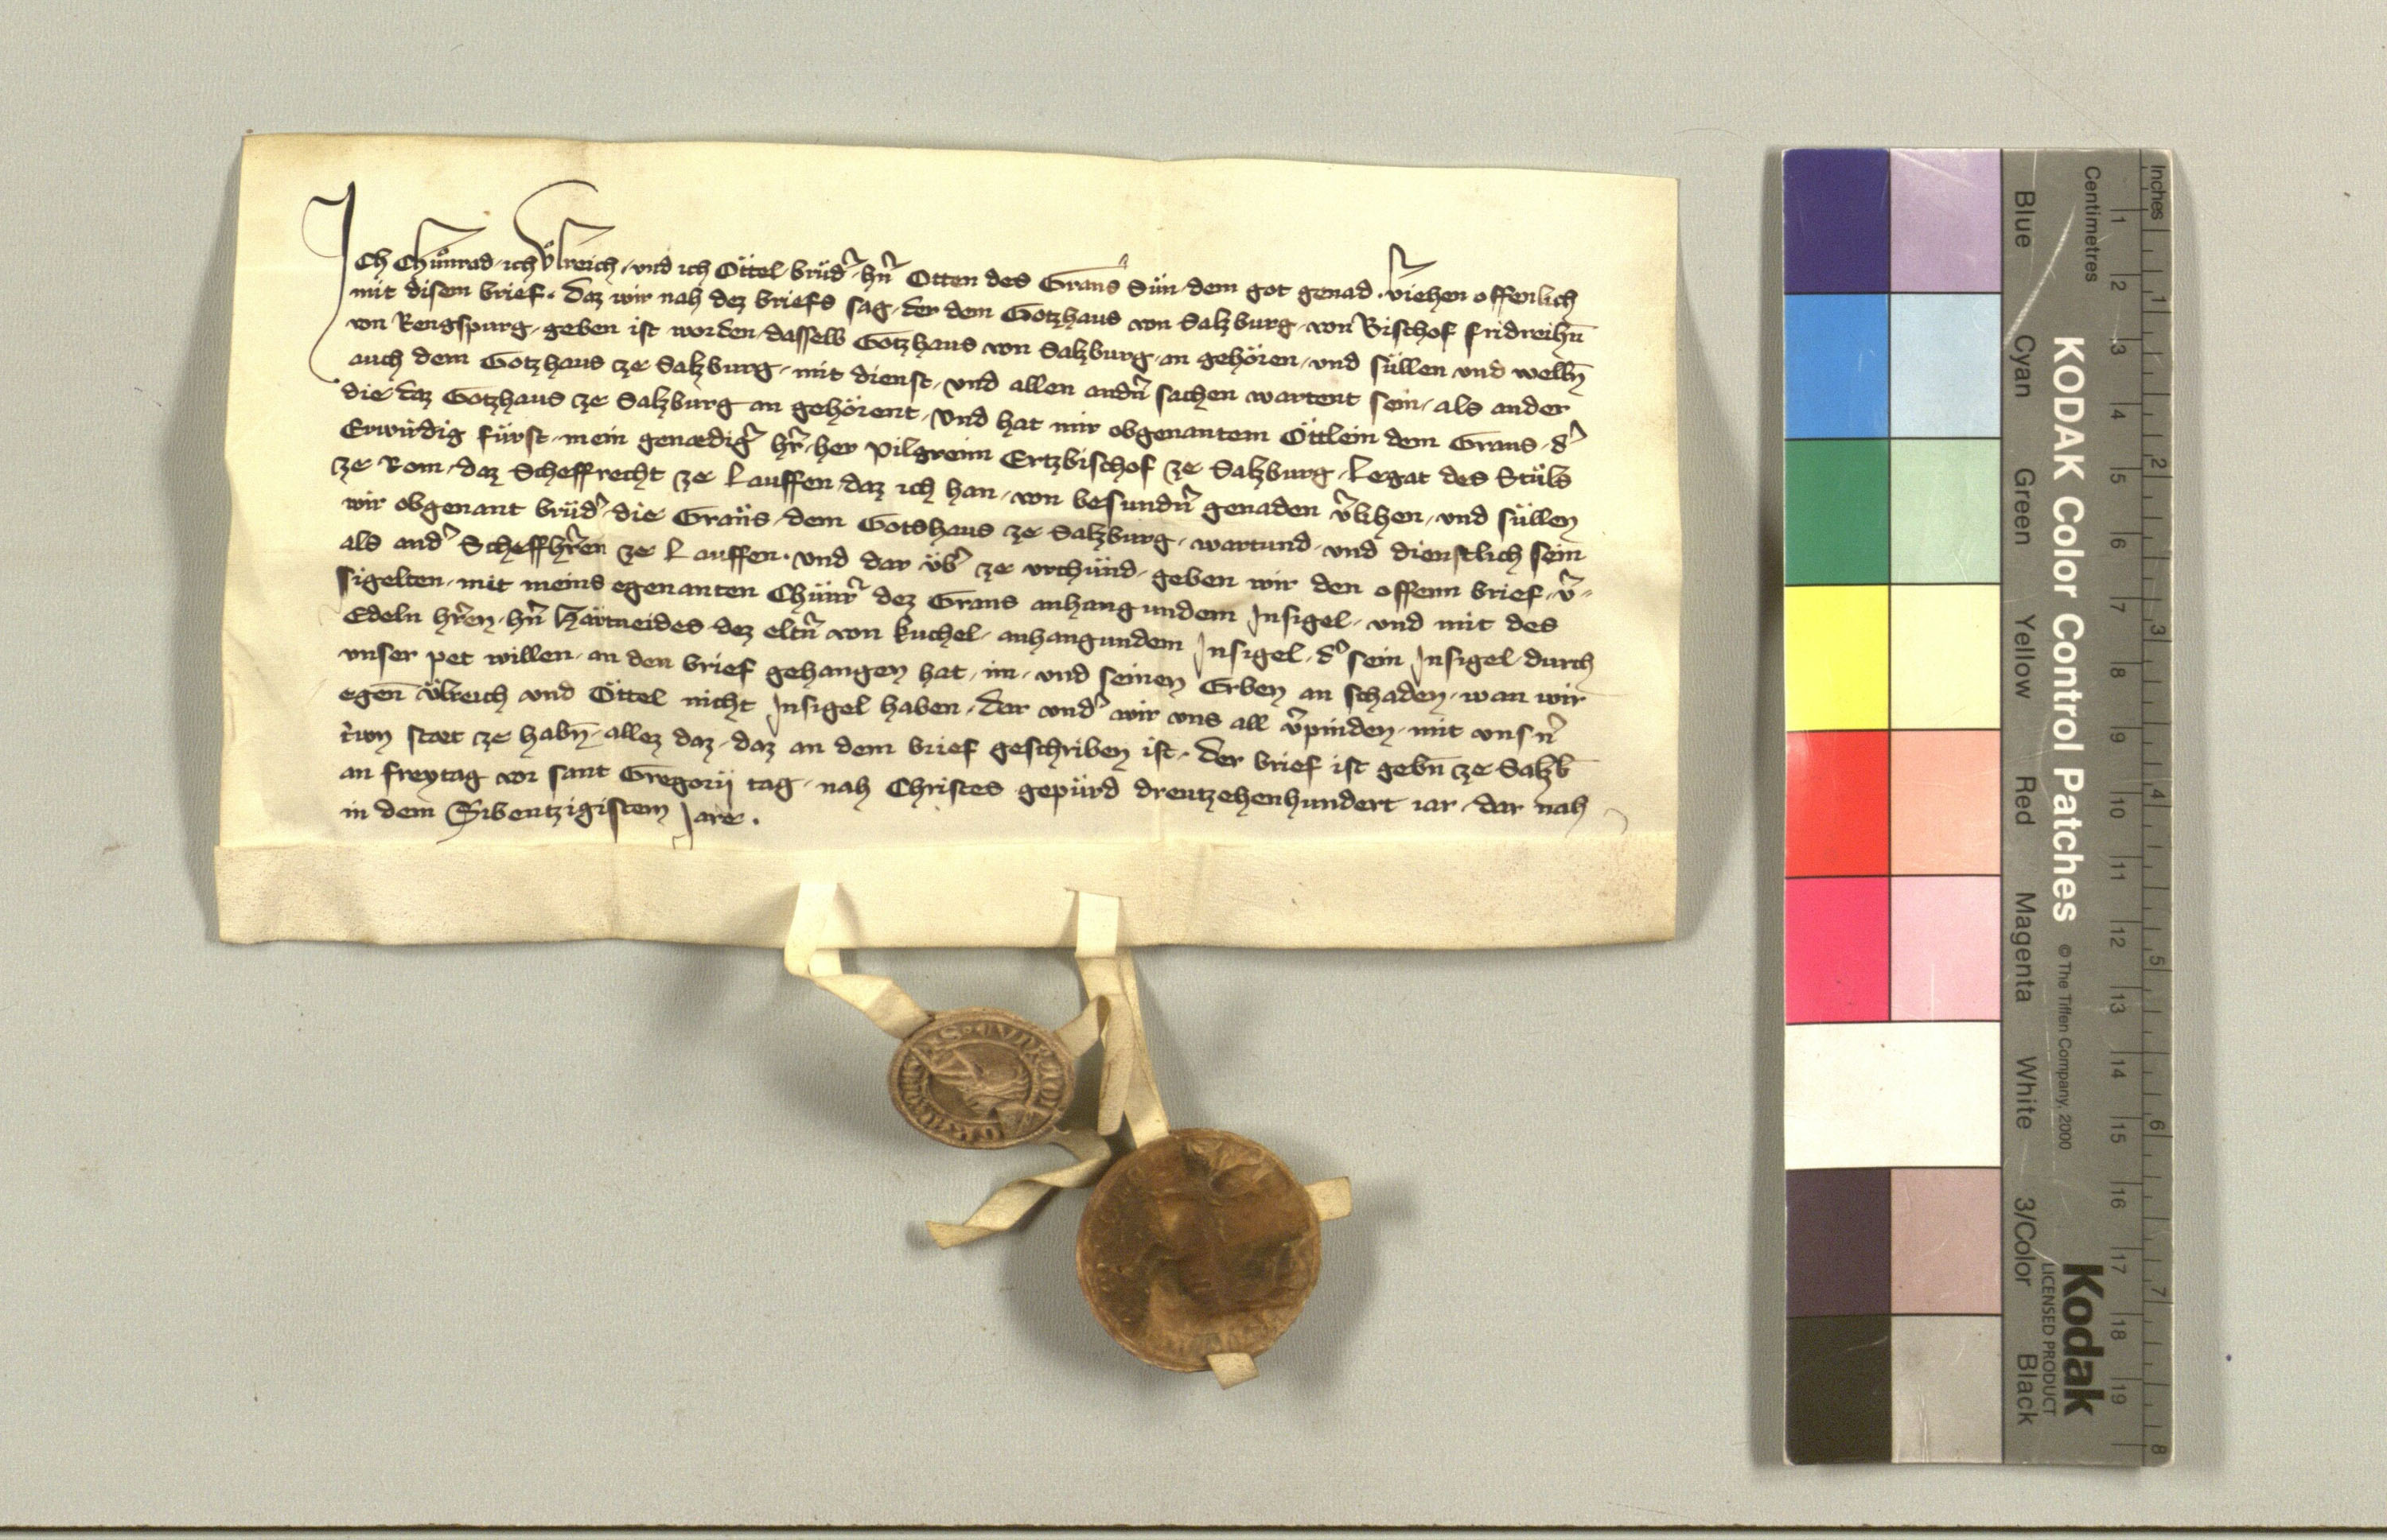 Ich Chůnrad ich Ůlreich, vnd ich Öttel, brůd̾ h̾n Otten des Grans Sün dem got genad. v̾iehen offenlich
mit disem brief. Daz wir nah dez briefs sag, der dem Gotzhaus von Salzburg, von Bischof Fridreihn̄
von Rengspurg, geben ist worden, dasselb Gotzhaus von Salzburg, an gehören, vnd süllen vnd welln̄
auch dem Gotzhaus ze Salzburg, mit dienst, vnd allen andn̾ sachen wartent sein, als ander
die daz Gotzhaus ze Salzburg an gehörent, Vnd hat mir obgenantem Öttlein dem Grans, d̾
Erwirdig fürst, mein genædig̾ hr̾, her Pilgreim Ertzbischof ze Salzburg, Legat des Stůls
ze Rom, daz Scheffrecht ze Lauffen, daz ich han, von besundn̾ genaden v̾lihen, vnd süllen
wir obgenant brüd̾, die Gräns, dem Gotshaus ze Salzburg, wartund, vnd dienstlich sein
als and̾ Scheffhr̾en ze Lauffen. vnd dar üb̾ ze vrchünd, geben wir den offenn brief, v̾-
sigelten, mit meins egenanten Chůnr̾ dez Grans anhangundem Insigel, vnd mit des
Edeln hr̾en, h̾n Härtneides dez eltn̾ von Kuchel, anhangundem Insigel, d̾ sein Insigel durch
vnser pet willen, an den brief gehangen hat, im, vnd seinen Erben an schaden, wan wir
egen̄ Ůlreich vnd Öttel nicht Insigel haben, dar vnd̾ wir vns all v̾pinden, mit vnsn̾
triwn stæt ze habn̄, allez daz, daz an dem brief geschriben ist. Der brief ist gebn̄ ze Salzb̄
an freytag vor sant Gregorij tag, nah Christes gepürd drentzehenhundert iar, dar nah
in dem Sibentzigistem Jare.
Inches
Centimetres
1 2 3 4 5 6 7 8 9 10 11 12 13 14 15 16 17 18 19
1 2 3 4 5 6 7 8
KODAK Color Control Patches © The Tiffen Company, 2000 Kodak
LICENSED PRODUCT
Blue Cyan Green Yellow Red Magenta White 3/Color Black